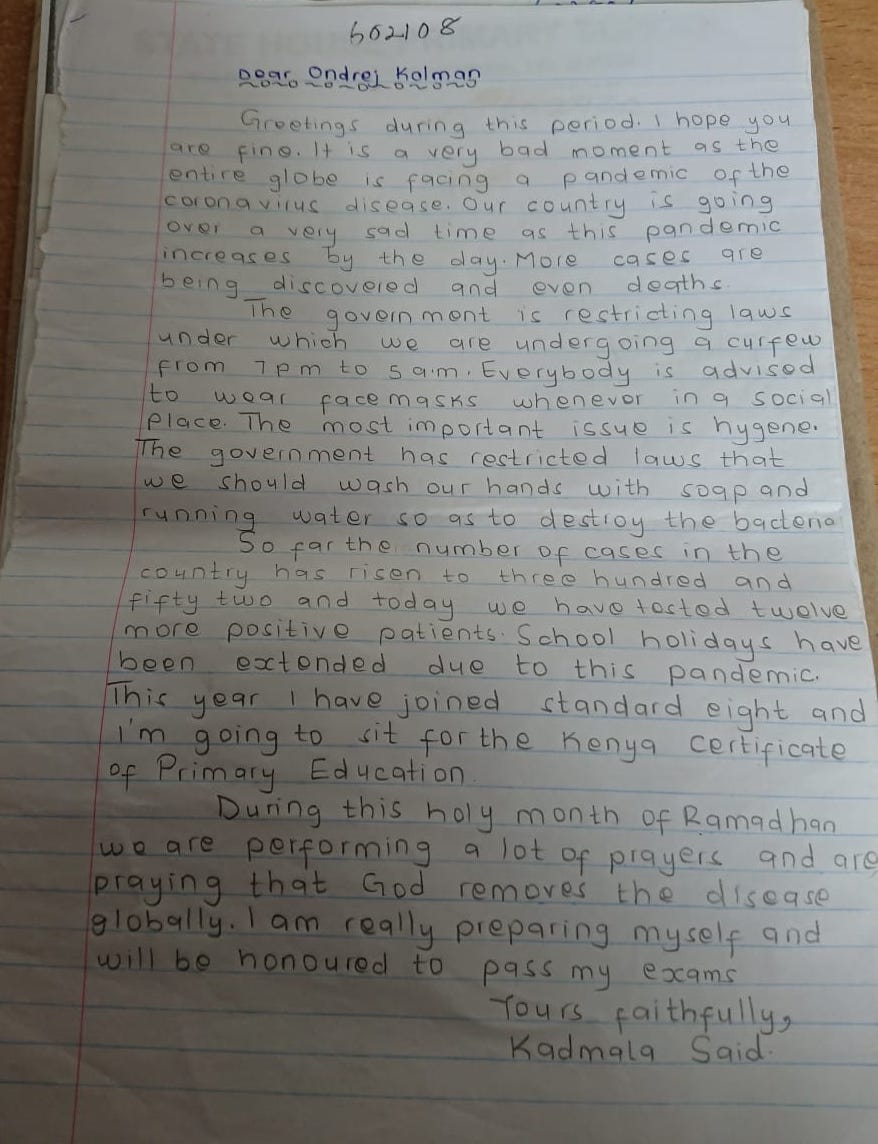 602108
Dear Ondrej Kolman
Greetings during this period. I hope you
are fine. It is a very bad moment as the
entire globe is facing a pandemic of the
coronavirus disease. Our country is going
over a very sad time as this pandemic
increases by the day. More cases are
being discovered and even deaths.
The government is restricting laws
under which we are undergoing a curfew
from 7pm to 5 a.m. Everybody is advised
to wear facemasks whenever in a social
place. The most important issue is hygene.
The government has restricted laws that
we should wash our hands with soap and
running water so as to destroy the bacteria
So far the number of cases in the
country has risen to three hundred and
fifty two and today we have tested twelve
more positive patients. School holidays have
been extended due to this pandemic.
This year I have joined standard eight and
I'm going to sit for the Kenya Certificate
of Primary Education.
During this holy month of Ramadhan
we are performing a lot of prayers and are
praying that God removes the disease
globally. I am really preparing myself and
will be honoured to pass my exams
Yours faithfully,
Kadmala Said.